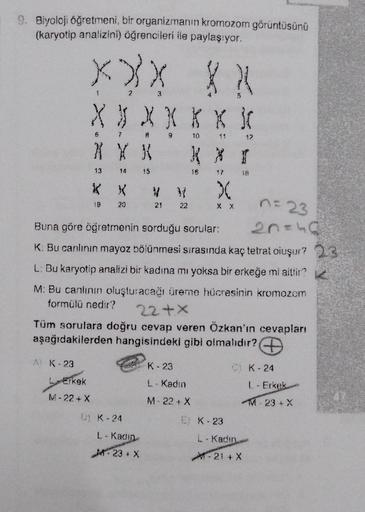 9. Biyoloji öğretmeni, bir organizmanın kromozom görüntüsünü
(karyotip analizini) öğrencileri ile paylaşıyor.
1 2 3 4 5
6 7 8 9 10 11 12
13 14 15 16 17 18
19 20 21 22 X X
n = 23
2n = 46
Buna göre öğretmenin sorduğu sorular:
K: Bu canlının mayoz bölünmesi sırasında kaç tetrat oluşur? 23
L: Bu karyotip analizi bir kadına mı yoksa bir erkeğe mi aittir? K
M: Bu canlının oluşturacağı üreme hücresinin kromozom
formülü nedir? 22+X
Tüm sorulara doğru cevap veren Özkan'ın cevapları
aşağıdakilerden hangisindeki gibi olmalıdır? +
A) K - 23
L - Erkek
M - 22 + X
K - 23
L - Kadın
M - 22 + X
C) K - 24
L - Erkek
M - 23 + X
D) K - 24
L - Kadın
M - 23 + X
E) K - 23
L - Kadın
M - 21 + X